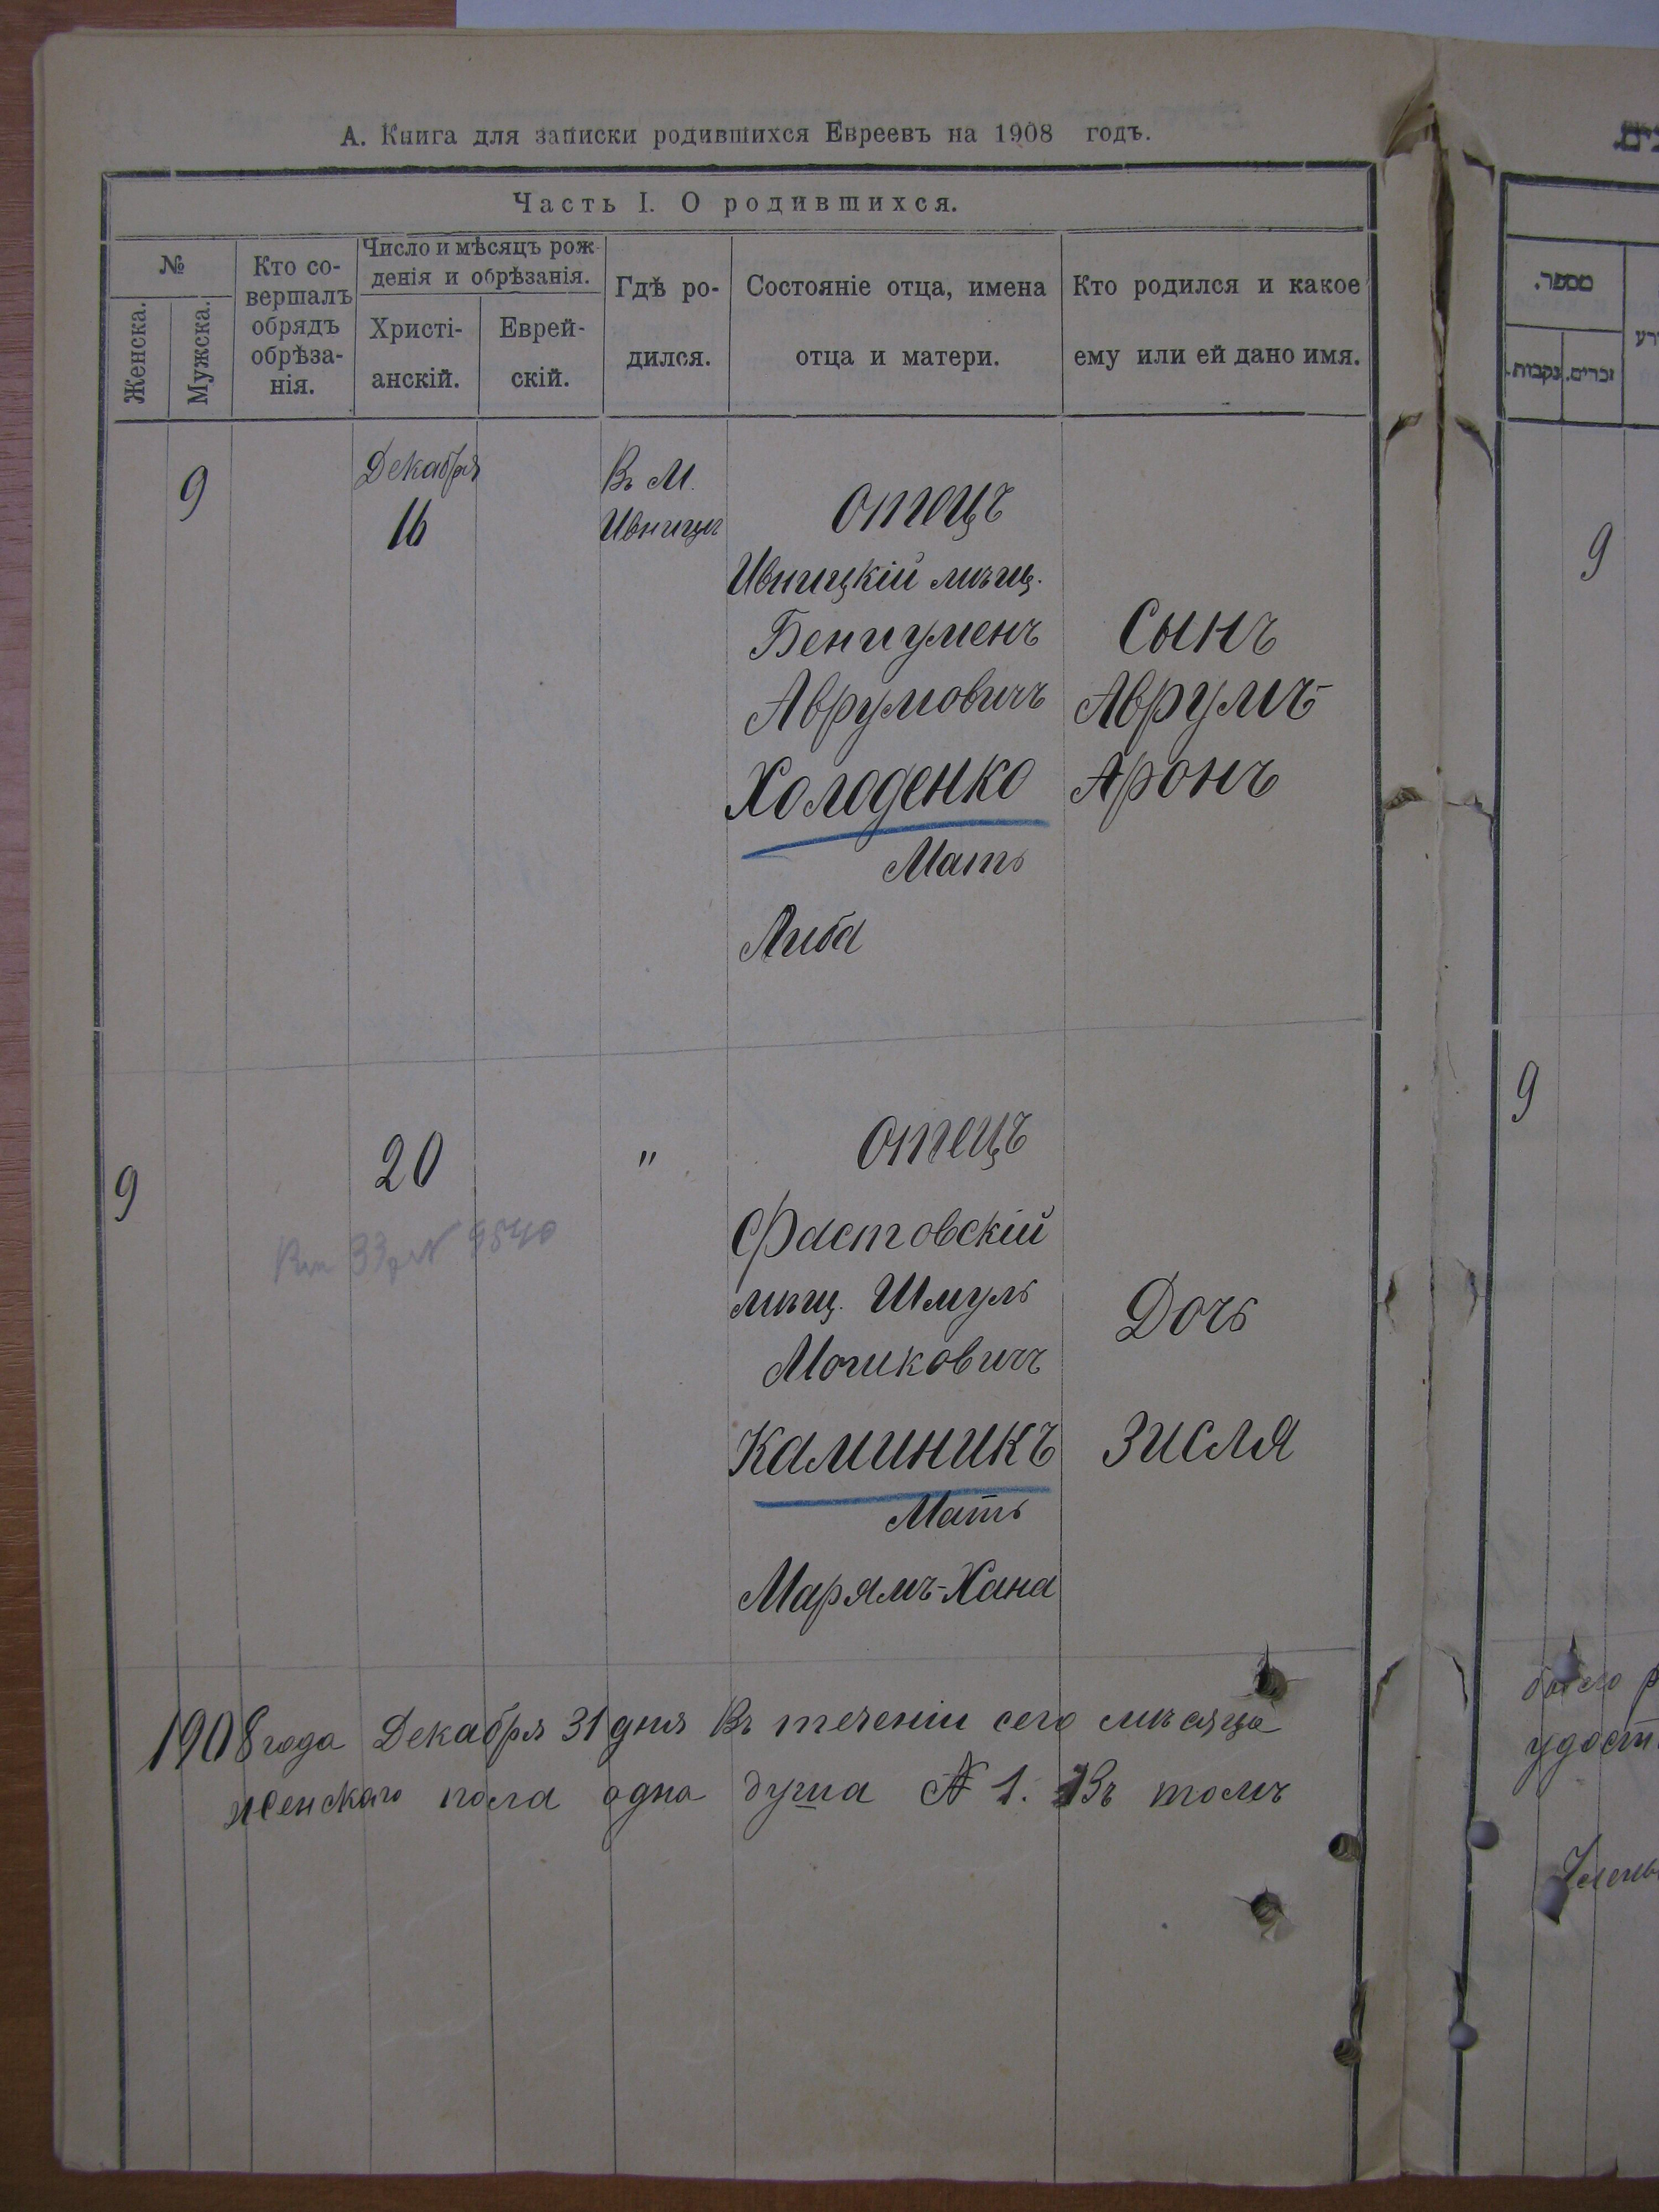 А. Книга для записки родившихся Евреевъ на 1908 годъ.
Часть I. О родившихся.
№
Женска.
Мужска.
Кто со-
вершалъ
обрядъ
обрѣза-
нія.
Число и мѣсяцъ рож-
денія и обрѣзанія.
Христі-
анскій.
Еврей-
скій.
Гдѣ ро-
дился.
Состояніе отца, имена
отца и матери.
Кто родился и какое
ему или ей дано имя.
9
Декабря
16
Въ М.
Ивницѣ
отецъ
Ивницкій мѣщ.
Бениуменъ
Аврумовичъ
Холоденко
Мать
Либа
Сынъ
Аврумъ-
Аронъ
9
20
"
отецъ
Фастовскій
мѣщ. Шмуль
Мошковичъ
Каминикъ
Мать
Марямъ-Хана
Дочь
Зисля
9540
1908 года Декабря 31 дня Въ теченіи сего мѣсяца
женскаго пола одна душа № 1. Въ томъ
מספר.
נקבות.
זכרים.
9
9
было р
удост
Члены